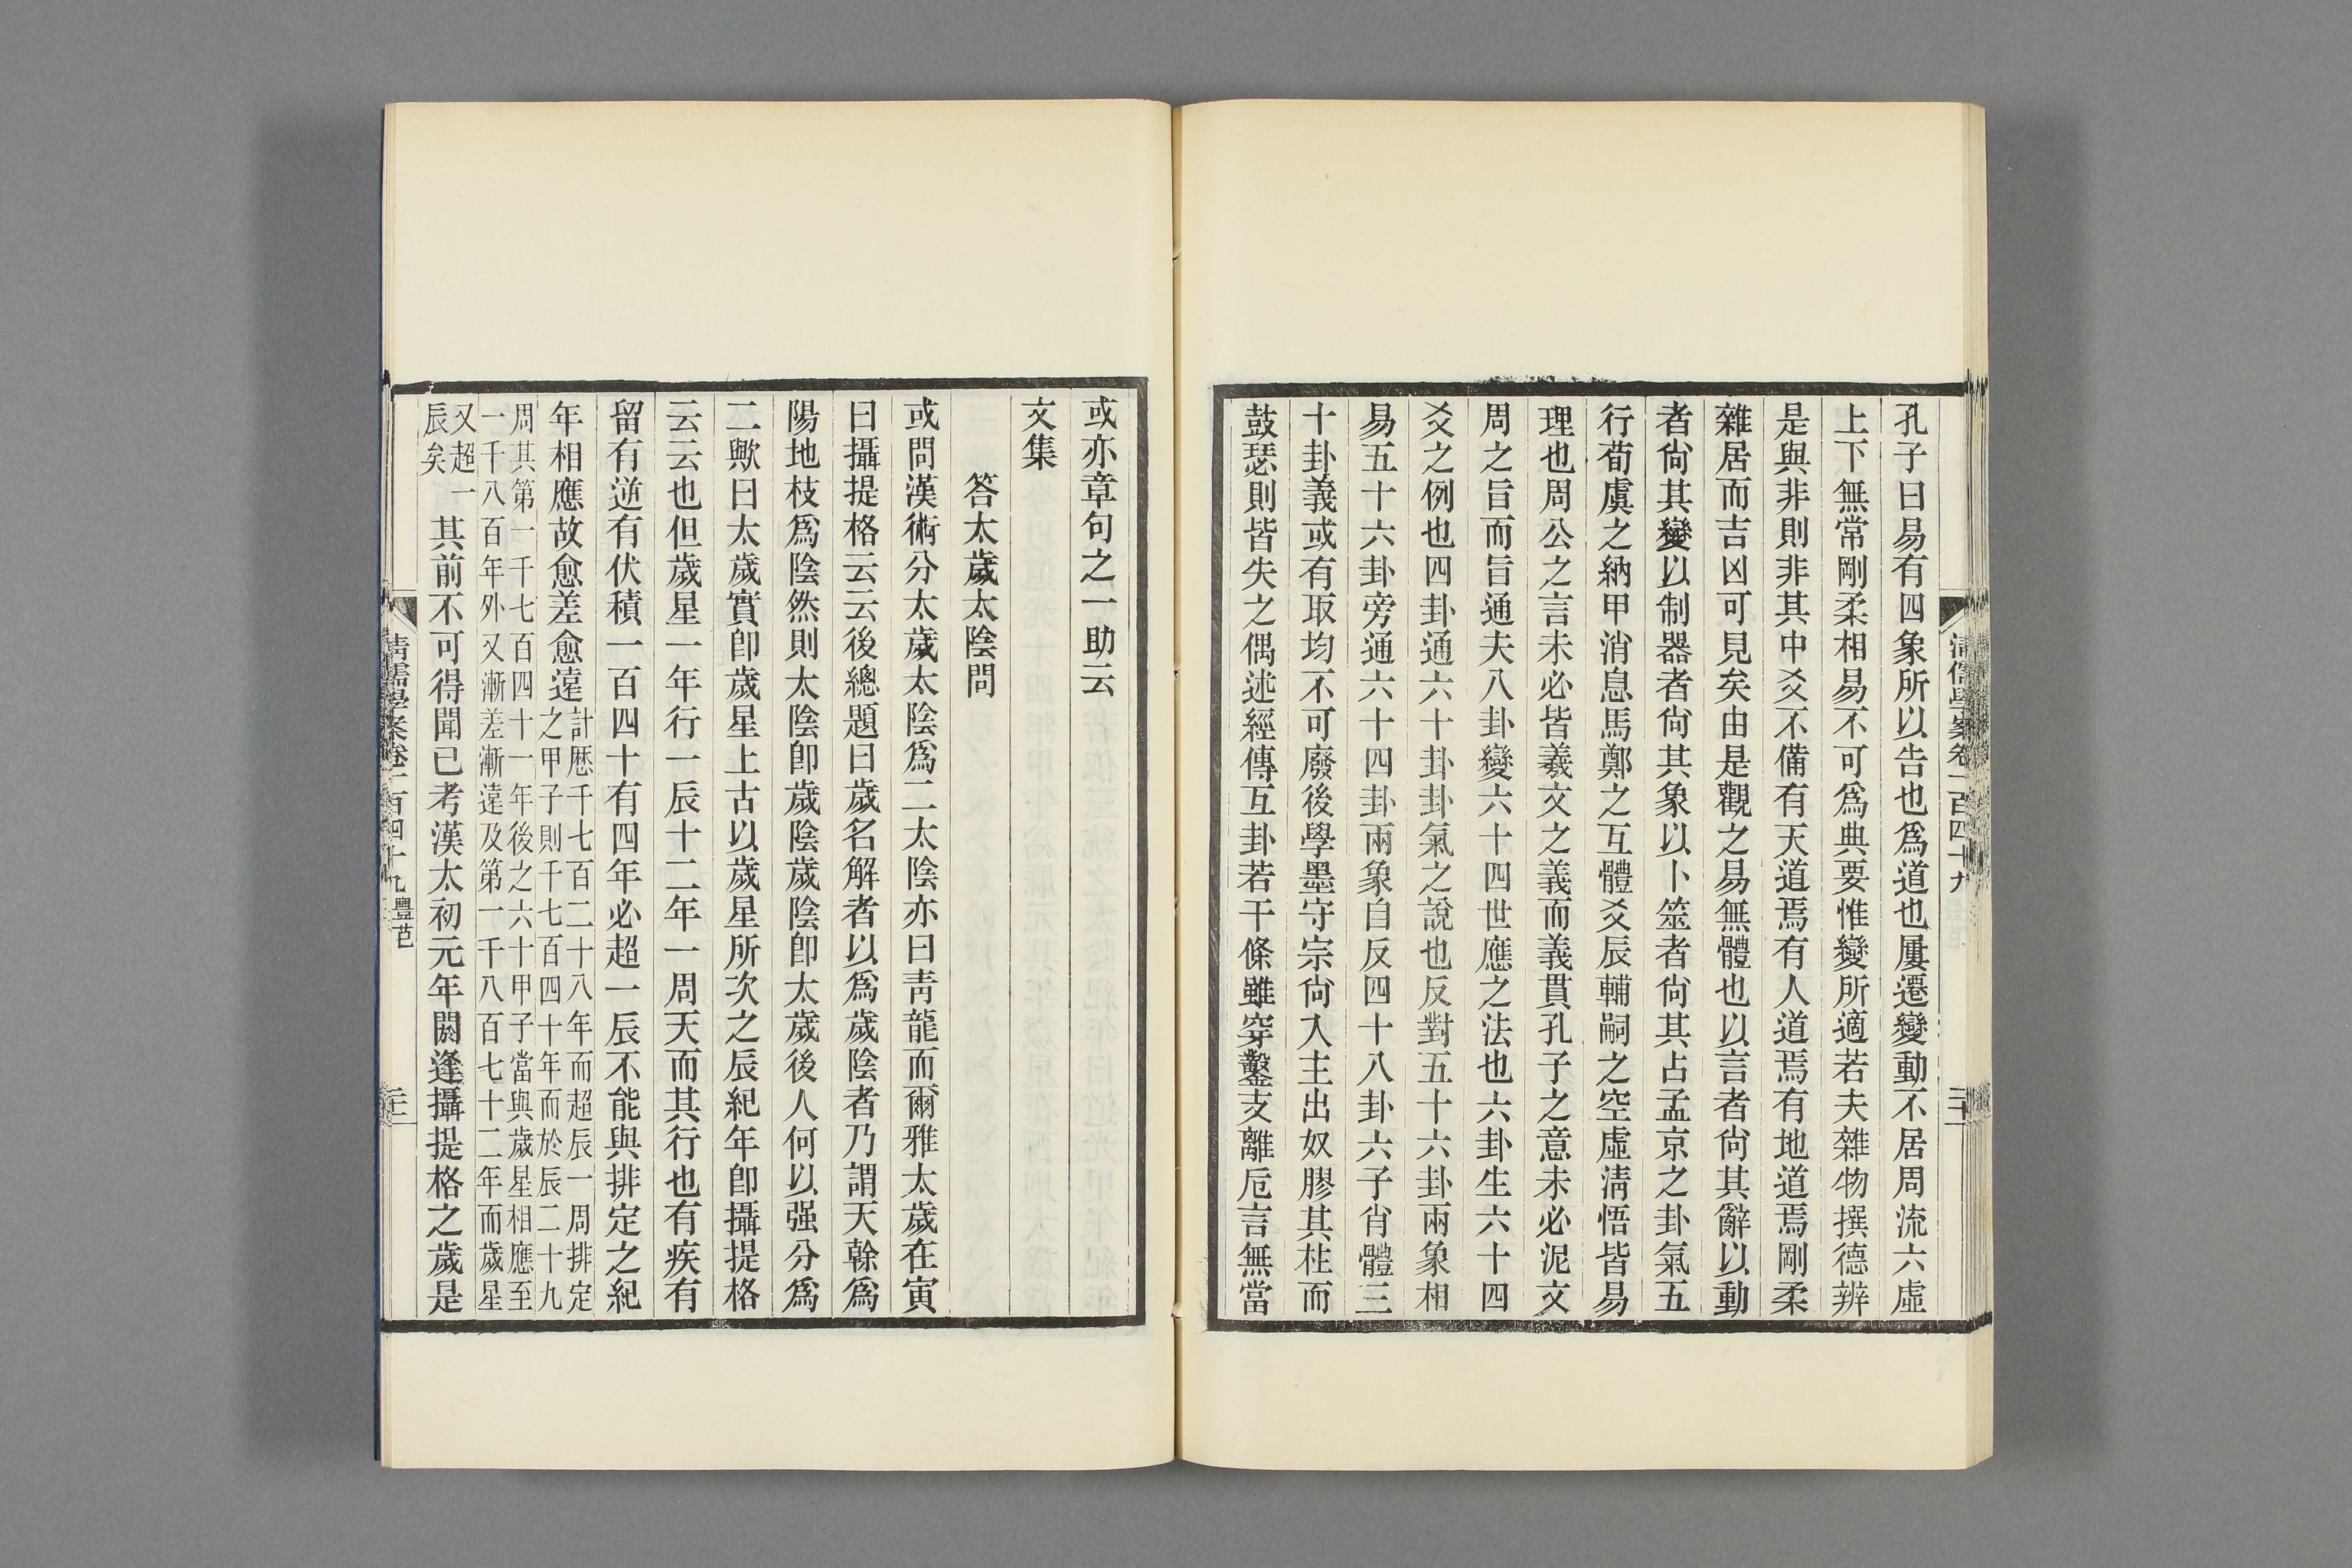 孔子曰易有四象所以告也爲道也屢遷變動不居周流六虛
上下無常剛柔相易不可爲典要惟變所適若夫雜物撰德辨
是與非則非其中爻不備有天道焉有人道焉有地道焉剛柔
雜居而吉凶可見矣由是觀之易無體也以言者尙其辭以動
者尙其變以制器者尙其象以卜筮者尙其占孟京之卦氣五
行荀虞之納甲消息馬鄭之互體爻辰輔嗣之空虛淸悟皆易
理也周公之言未必皆羲文之義而義貫孔子之意未必泥文
周之旨而旨通夫八卦變六十四世應之法也六卦生六十四
爻之例也四卦通六十卦卦氣之說也反對五十六卦兩象相
易五十六卦旁通六十四卦兩象自反四十八卦六子肖體三
十卦義或有取均不可廢後學墨守宗尙入主出奴膠其柱而
鼓瑟則皆失之偶述經傳互卦若干條雖穿鑿支離卮言無當
或亦章句之一助云
文集
答太歲太陰問
或問漢術分太歲太陰爲二太陰亦曰靑龍而爾雅太歲在寅
曰攝提格云云後總題曰歲名解者以爲歲陰者乃謂天榦爲
陽地枝爲陰然則太陰卽歲陰歲陰卽太歲後人何以强分爲
二歟曰太歲實卽歲星上古以歲星所次之辰紀年卽攝提格
云云也但歲星一年行一辰十二年一周天而其行也有疾有
留有逆有伏積一百四十有四年必超一辰不能與排定之紀
年相應故愈差愈遠計歷千七百二十八年而超辰一周排定
之甲子則千七百四十年而於辰二十九
周其第一千七百四十一年後之六十甲子當與歲星相應至
一千八百年外又漸差漸遠及第一千八百七十二年而歲星
又超一
辰矣
其前不可得聞已考漢太初元年閼逢攝提格之歲是
淸儒學案卷一百四十九 豐芑